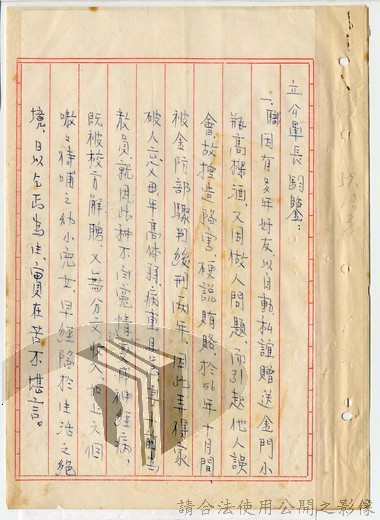 立分軍長鈞鑒：
一、職因有多年好友以自動私誼贈送金門小
瓶高樑酒，又因做人問題，而引起他人誤
會，故捏造陷害，硬說賄賂，於54年十月間，
被金防部驟判緩刑一兩年，因此弄得家
破人亡，父母年高体弱，病重
教員，就因此神不白冤情 神經病，
既被校方解聘，又無分文收入，加上六個
嗷々待哺之幼小兒女，早經陷於生活之絕
境，日以乞丐為生，實在苦不堪言。
請合法使用公開之影像